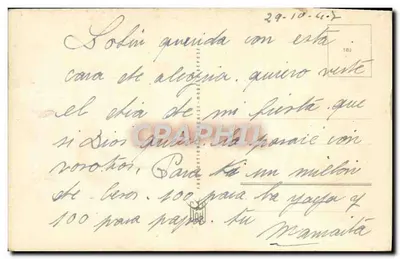 29-10-47
querida con esta
cara de alegria. quiero verte
el dia de mi fiesta. que
si Dios quiere la pasare con
vosotros, Para ti un millon
de besos. 100 para la yaya y
100 para papa. tu
Mamaita